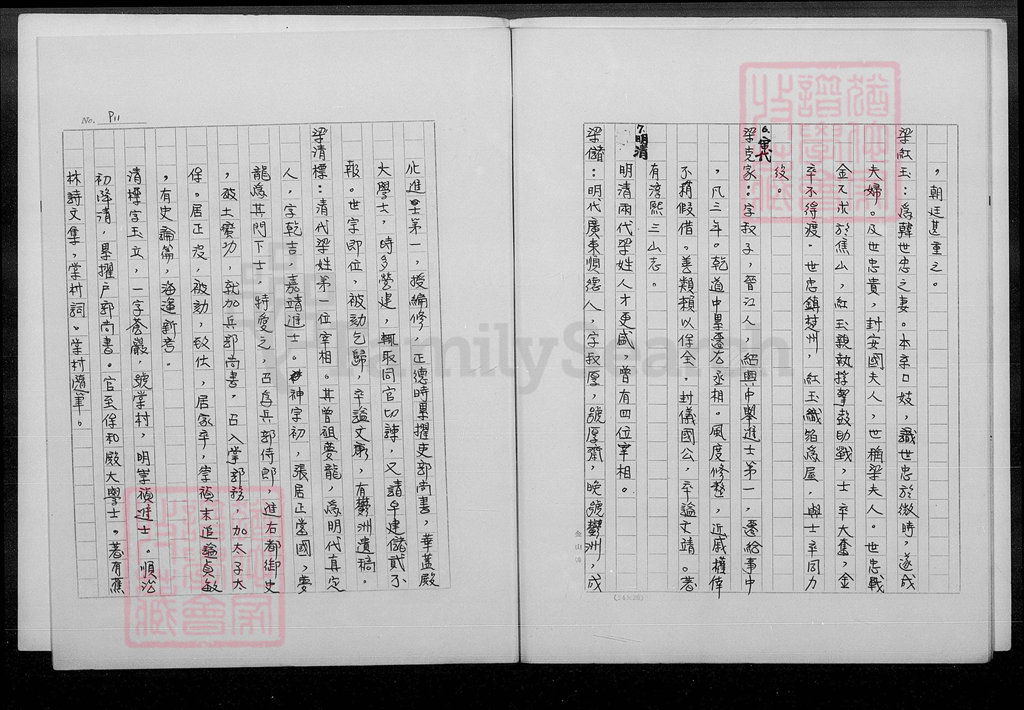 ，朝廷甚重之。
梁紅玉：為韓世忠之妻。本京口妓，識世忠於微時，遂成
夫婦。及世忠貴，封安國夫人，也稱梁夫人。世忠戰
金兀朮於焦山，紅玉親執桴擊鼓助戰，士卒大奮，金
卒不得渡。世忠鎮楚州，紅玉織箔為屋，與士卒同力
役。
6.宋代
梁克家：字叔子，晉江人，紹興中舉進士第一，遷給事中
，凡三年。乾道中累遷右丞相。風度修整，近戚權倖
不稍假借。善類賴以保全，封儀國公，卒諡文靖。著
有淳熙三山志。
7.明清
明清兩代梁姓人才更盛，曾有四位宰相。
梁儲：明代廣東順德人，字叔厚，號厚齋，晚號鬱洲，成
金山
(24×25)
No. P11
化進士第一，授編修，正德時累擢吏部尚書，華蓋殿
大學士，時多營建，輒取同官切諫，又請早建儲貳不
報。世宗即位，被劾乞歸，卒諡文康，有鬱洲遺稿。
梁清標：清代梁姓第一位宰相。其曾祖夢龍，為明代真定
人，字乾吉，嘉靖進士。神宗初，張居正當國，夢
龍為其門下士，特愛之，召為兵部侍郎，進右都御史
，破土蠻功，就加兵部尚書，召入掌部務，加太子太
保。居正歿，被劾，致仕，居家卒，崇禎末追諡貞敏
，有史論篇，海運新考。
清標字玉立，一字蒼巖，號棠村，明崇禎進士。順治
初降清，累擢戶部尚書。官至保和殿大學士。著有蕉
林詩文集，棠村詞。棠村隨筆。
FamilySearch